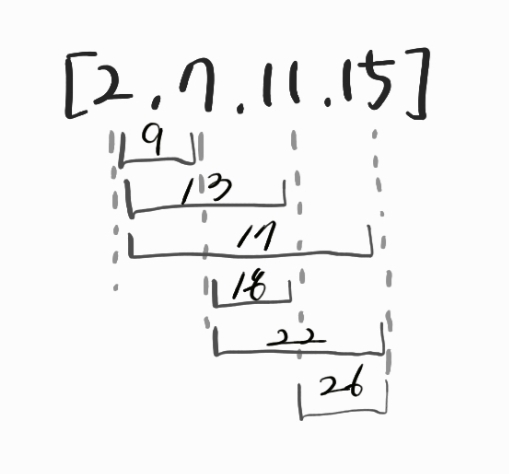 [2.7.11.15]
9
13
17
18
22
26